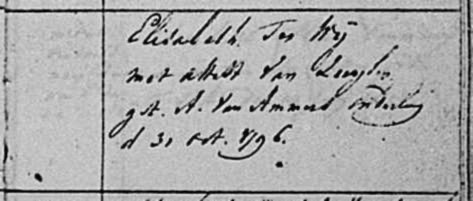 Elisabeth Ter Wij
met attest van
get. A. van Ammers
d 31 oct. 1796.